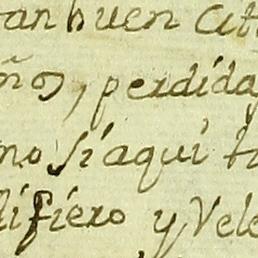 an buen cit
ños, perdida
no si aqui t
lifiero y Vele